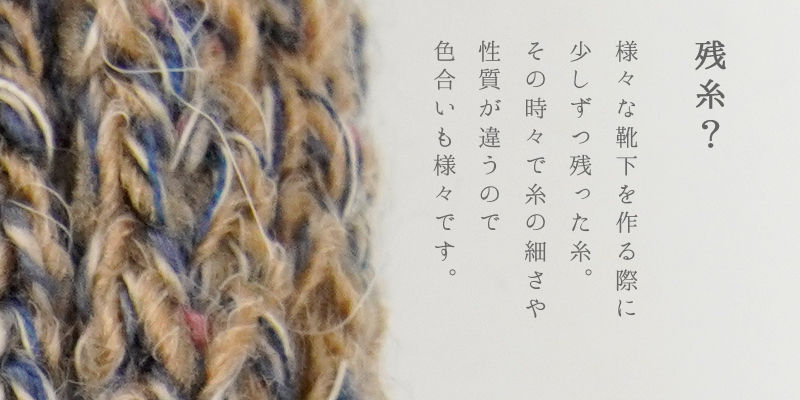 残糸？
様々な靴下を作る際に
少しずつ残った糸。
その時々で糸の細さや
性質が違うので
色合いも様々です。